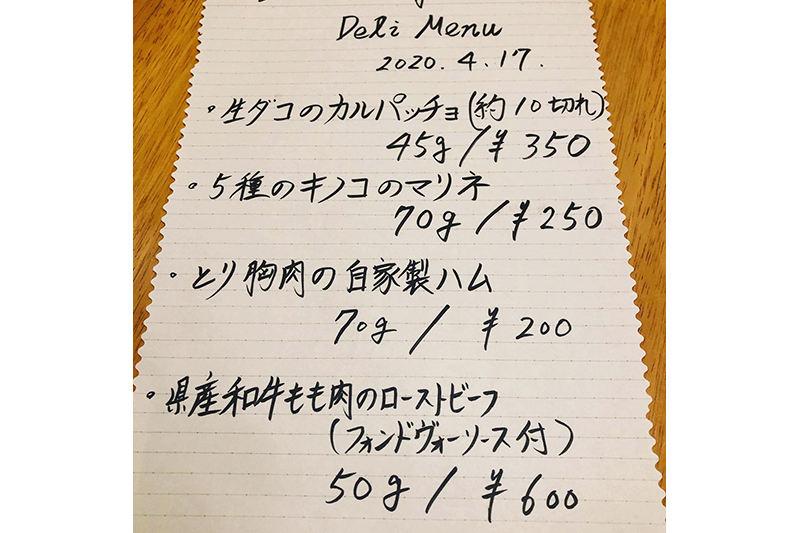 Deli Menu
2020.4.17.
・生ダコのカルパッチョ(約10切れ)
45g/¥350
・5種のキノコのマリネ
70g/¥250
・とり胸肉の自家製ハム
70g/¥200
・県産和牛もも肉のローストビーフ
(フォンドヴォーソース付)
50g/¥600